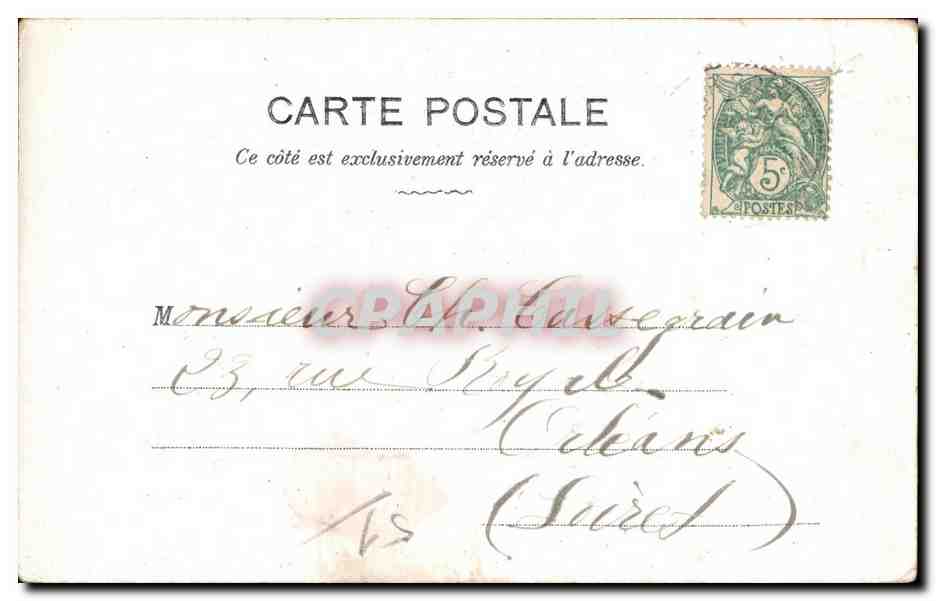 CARTE POSTALE
Ce côté est exclusivement réservé à l'adresse.
5c
POSTES
Monsieur Ch.
CPAPHIL
23, rue Royale
Orléans
(Loiret)
15